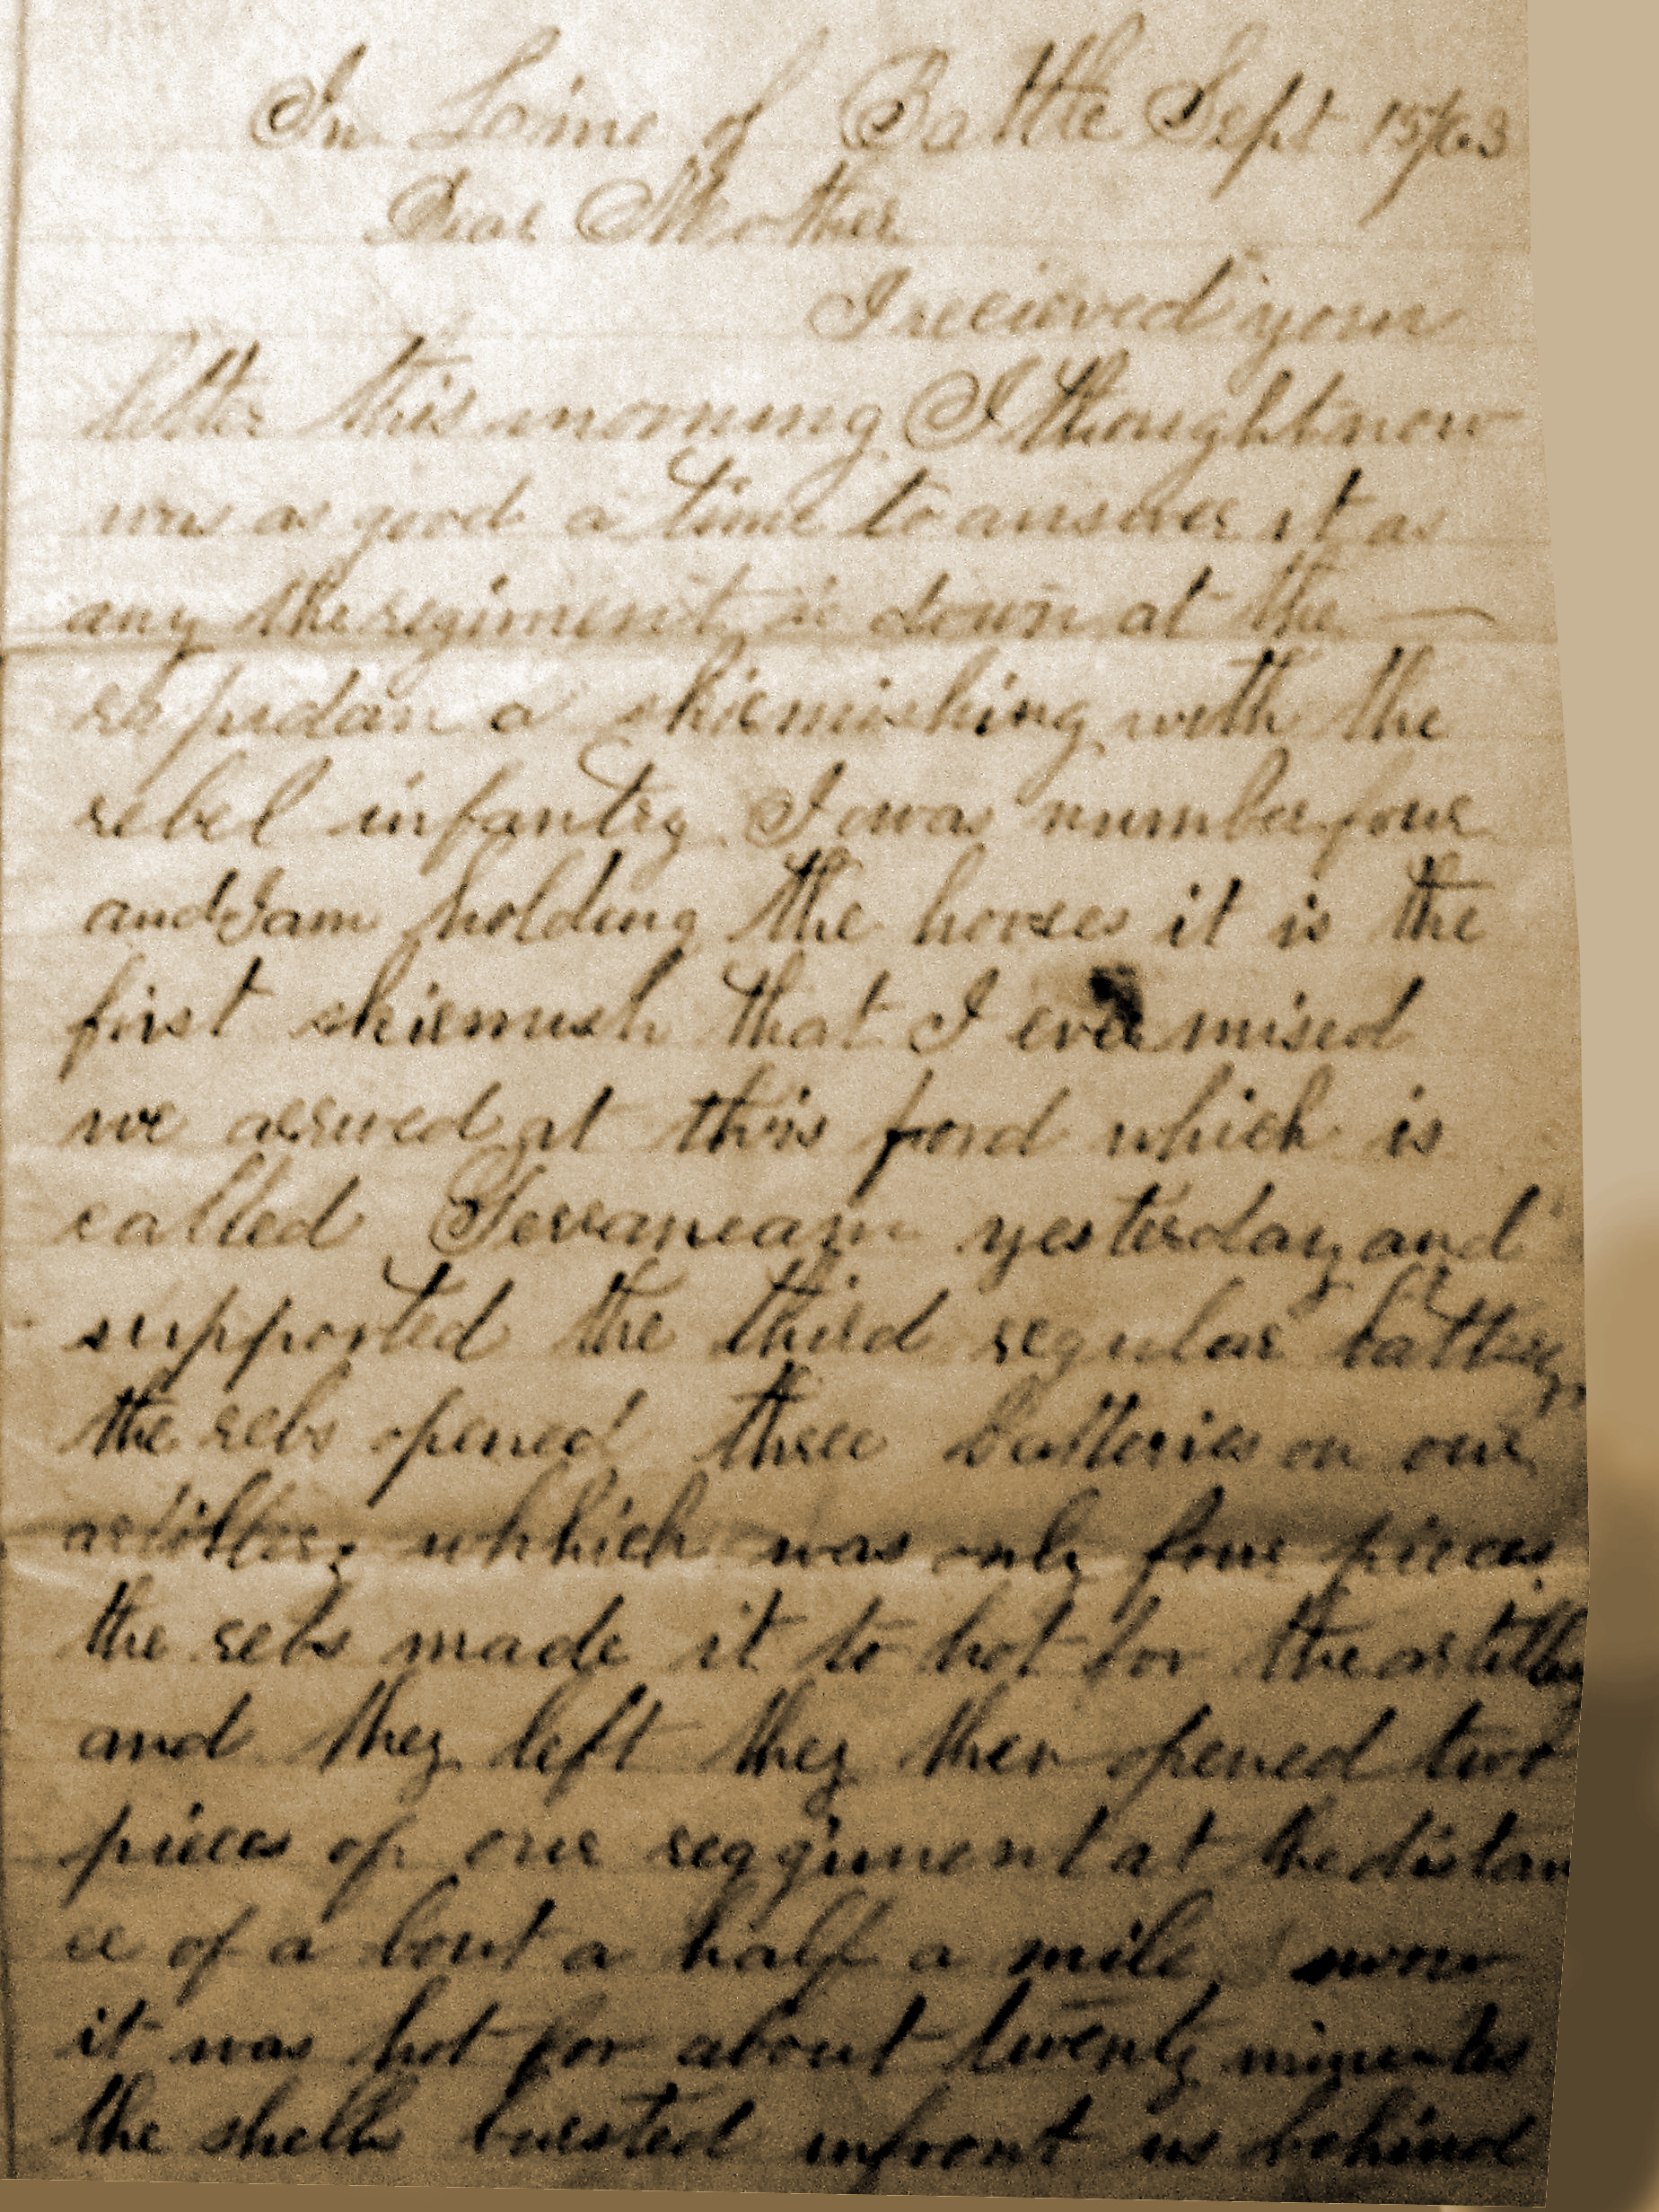 In Line of Battle Sept 15/63
Dear Mother
I recieved your
letter this morning I thought now
was as good a time to answer it as
any the regiment is down at the
rapidan a skirmishing with the
rebel infantry I was number four
and I am holding the horses it is the
first skirmush that I ever mised
we arrived at this ford which is
called yesterday and
supported the third regular battery
the rebs opened three batteries on our
artillery whhich was only four pieces
the rebs made it to hot for the artillery
and they left they then opened two
pieces on our reggiment at the distan
ce of a bout a half a mile
it was hot for about twenty minutes
the shells bursted infront us behind